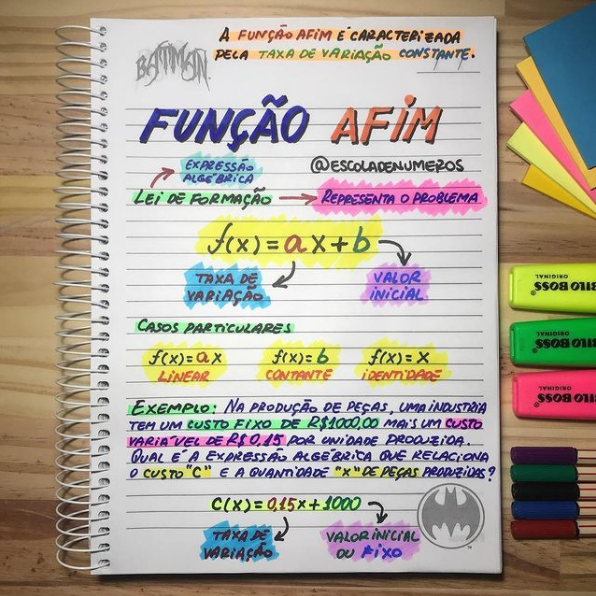 A FUNÇÃO AFIM É CARACTERIZADA
PELA TAXA DE VARIAÇÃO CONSTANTE.
BATMAN
FUNÇÃO AFIM
EXPRESSÃO
ALGÉBRICA
@ESCOLADENUMEROS
LEI DE FORMAÇÃO → REPRESENTA O PROBLEMA
f(x) = ax + b
TAXA DE
VARIAÇÃO
VALOR
INICIAL
CASOS PARTICULARES
f(x) = ax
LINEAR
f(x) = b
CONTANTE
f(x) = x
IDENTIDADE
EXEMPLO: NA PRODUÇÃO DE PEÇAS, UMA INDÚSTRIA
TEM UM CUSTO FIXO DE R$1000,00 MAIS UM CUSTO
VARIÁVEL DE R$0,15 POR UNIDADE PRODUZIDA.
QUAL É A EXPRESSÃO ALGÉBRICA QUE RELACIONA
O CUSTO "C" E A QUANTIDADE "X" DE PEÇAS PRODUZIDAS?
C(x) = 0,15x + 1000
TAXA DE
VARIAÇÃO
VALOR INICIAL
OU FIXO
BILO BOSS
ORIGINAL
BILO BOSS
ORIGINAL
BILO BOSS
ORIGINAL